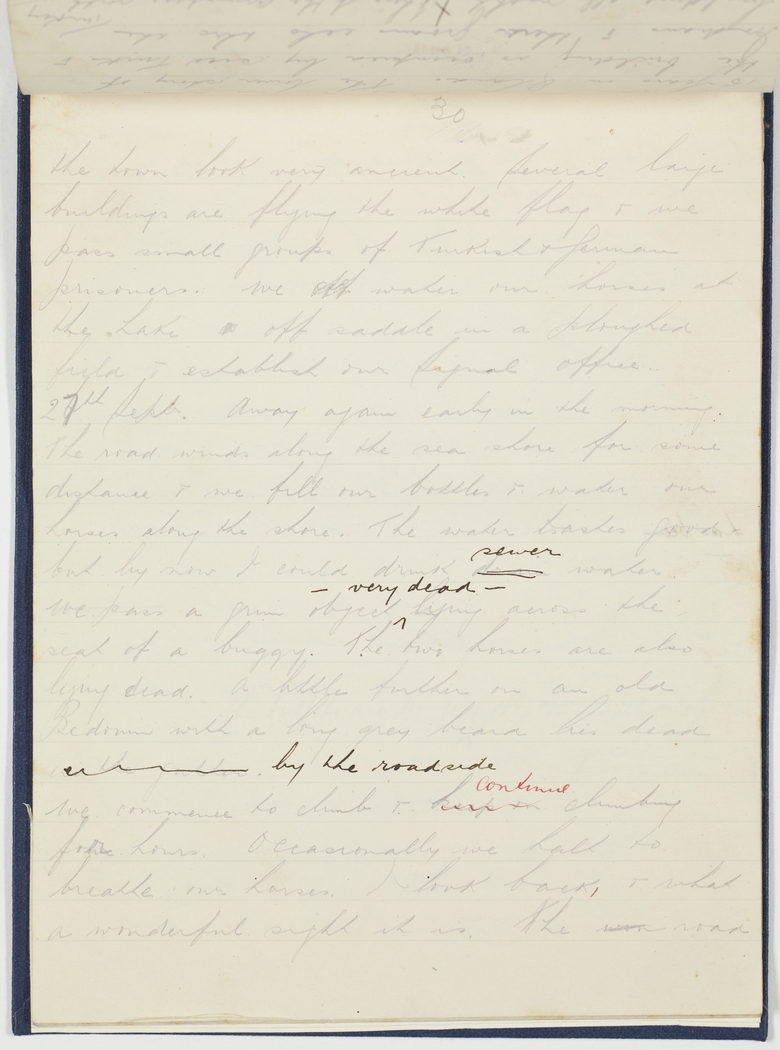 30
the town look very ancient. Several large
buildings are flying the white flag & we
pass small groups of Turkish & German
prisoners. We water our horses at
the Lake off saddle in a ploughed
field & establish our Signal office.
27th Septr. Away again early in the morning.
The road winds along the sea shore for some
distance & we fill our bottles & water our
horses along the shore. The water tastes good
sewer
but by now I could drink water.
- very dead -
We pass a grim object lying across the
seat of a buggy. The two horses are also
lying dead. A little further on an old
Bedouin with a long grey beard lies dead
by the roadside
continue
we commence to climb & climbing
for hours. Occasionally we halt to
breathe our horses. I look back, & what
a wonderful sight it is. The road